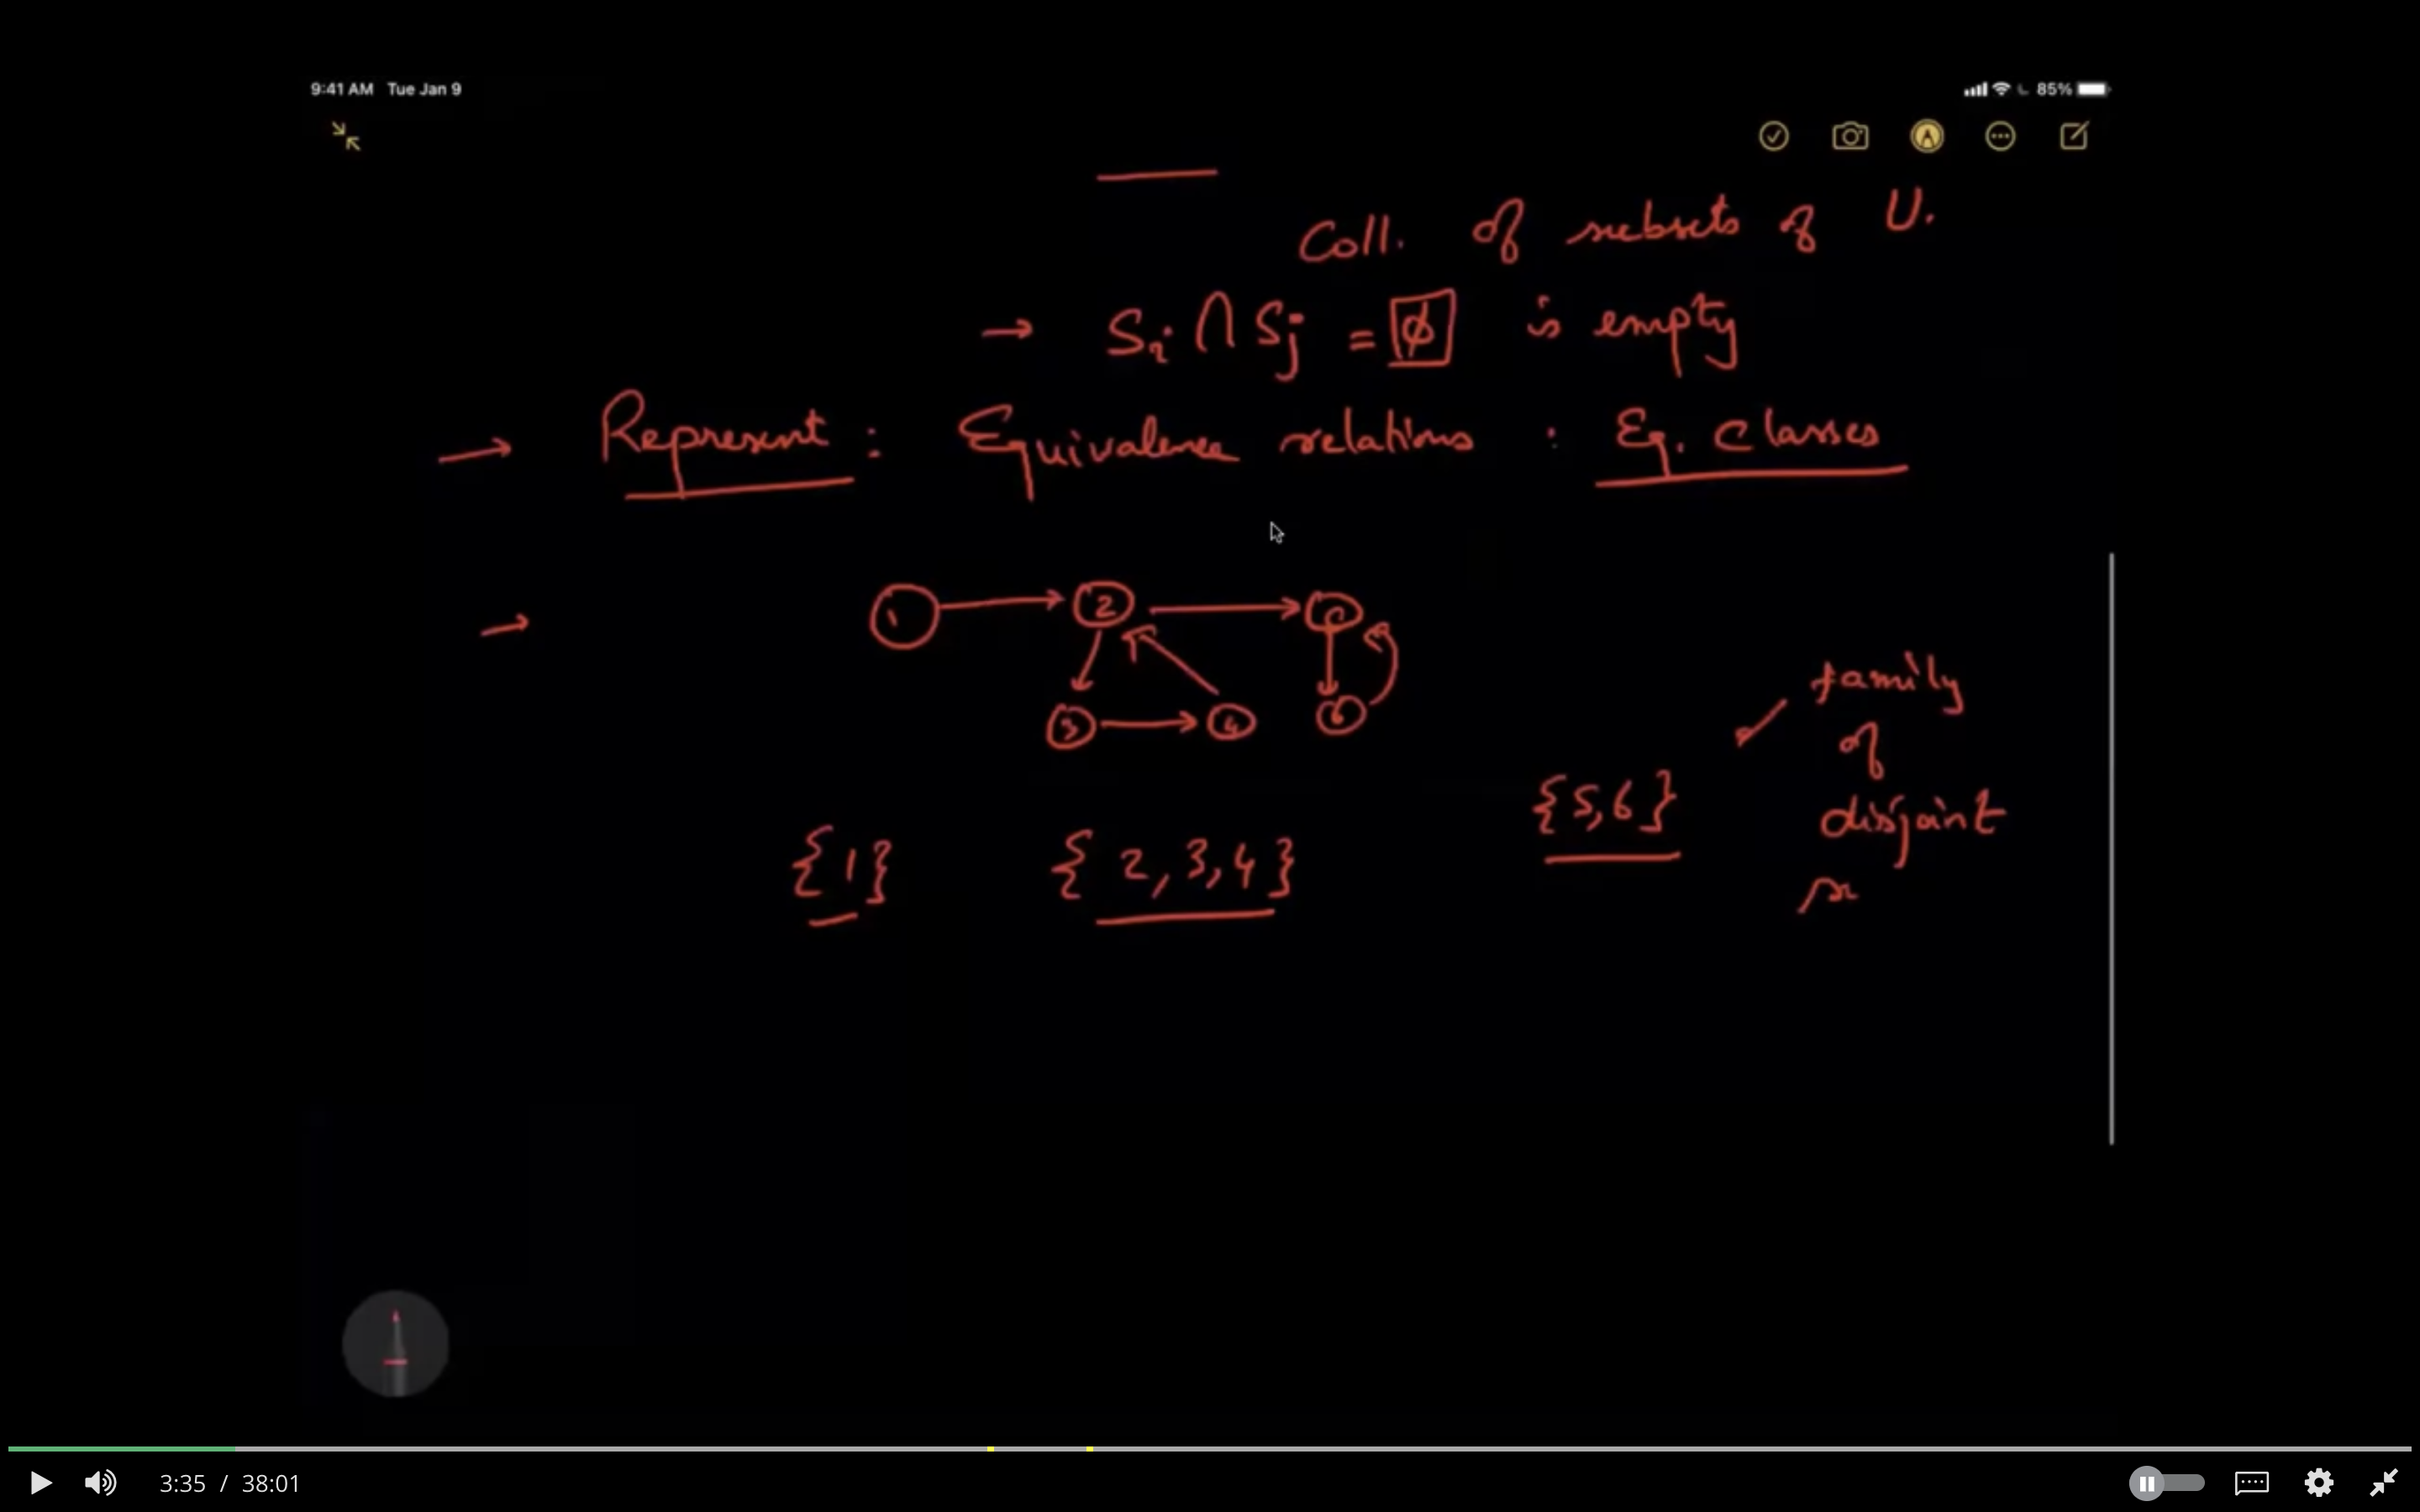 9:41 AM Tue Jan 9
85%
Coll. of subsets of U.
→ Si ∩ Sj = ϕ is empty
→ Represent : Equivalence relations : Eq. Classes
→ 1 → 2 →
3 → 4 6
family
of
disjoint
{5,6}
{1} {2,3,4}
3:35 / 38:01